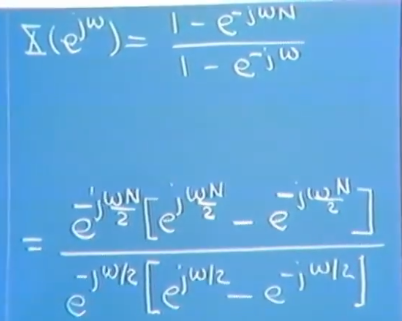 X(e^{jω}) = \frac{1 - e^{-jωN}}{1 - e^{-jω}}
= \frac{e^{-j\frac{ωN}{2}} [e^{j\frac{ωN}{2}} - e^{-j\frac{ωN}{2}}]}{e^{-jω/2} [e^{jω/2} - e^{-jω/2}]}